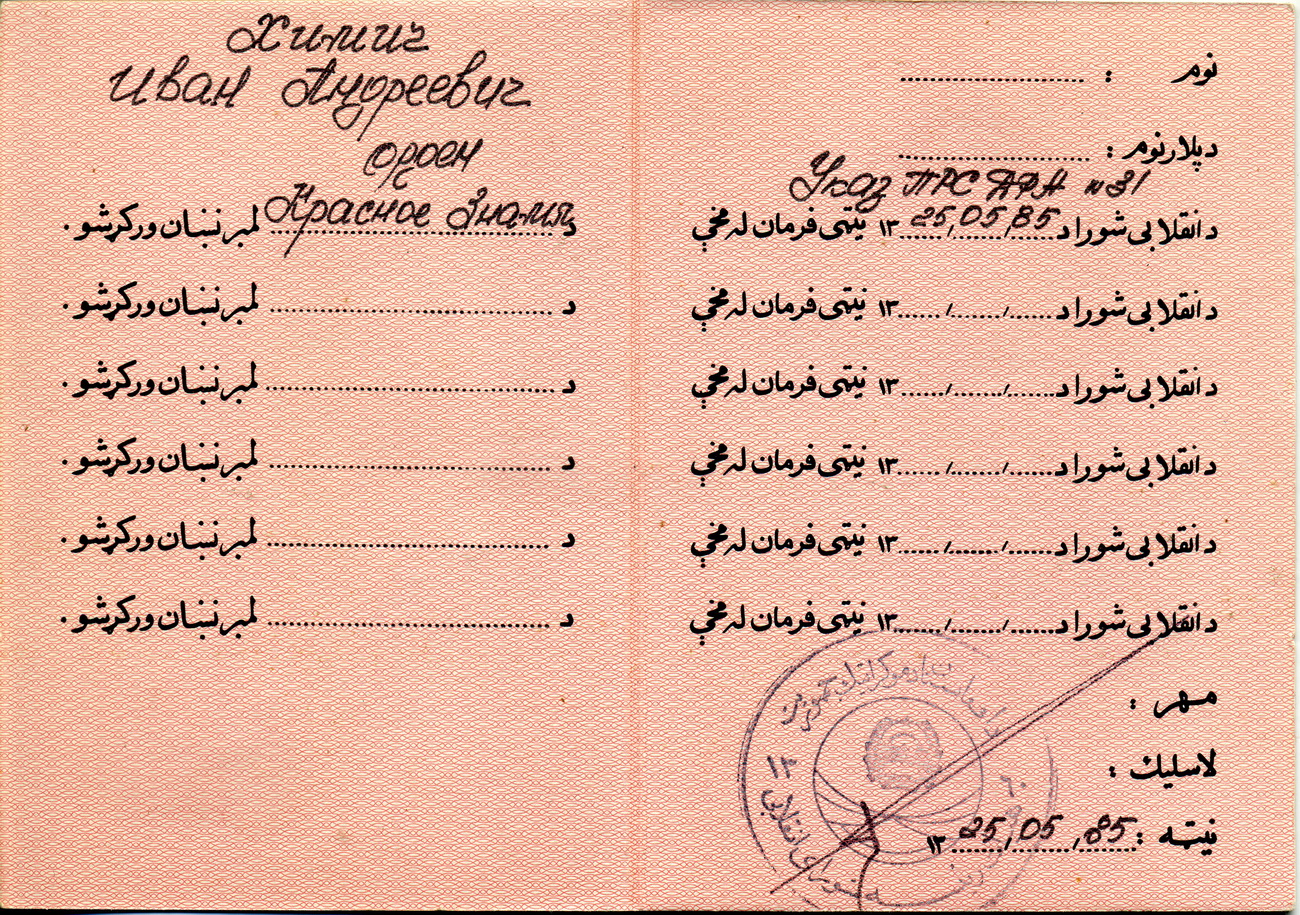 Химич
Иван Андреевич
орден
Красное Знамя
د .......... لمبر نښان ورکړشو .
د .......... لمبر نښان ورکړشو .
د .......... لمبر نښان ورکړشو .
د .......... لمبر نښان ورکړشو .
د .......... لمبر نښان ورکړشو .
د .......... لمبر نښان ورکړشو .
نوم : ..........
د پلار نوم : ..........
Указ ПРС ДРА №31
د انقلابی شورا د 25,05,85 ۱۳ نیټی فرمان له مخې
د انقلابی شورا د ....../....../...... ۱۳ نیټی فرمان له مخې
د انقلابی شورا د ....../....../...... ۱۳ نیټی فرمان له مخې
د انقلابی شورا د ....../....../...... ۱۳ نیټی فرمان له مخې
د انقلابی شورا د ....../....../...... ۱۳ نیټی فرمان له مخې
د انقلابی شورا د ....../....../...... ۱۳ نیټی فرمان له مخې
مهر :
لاسلیك :
نیټه : 25,05,85 ۱۳
د افغانستان دموکراتیك جمهوریت
۱۳
انقلابی